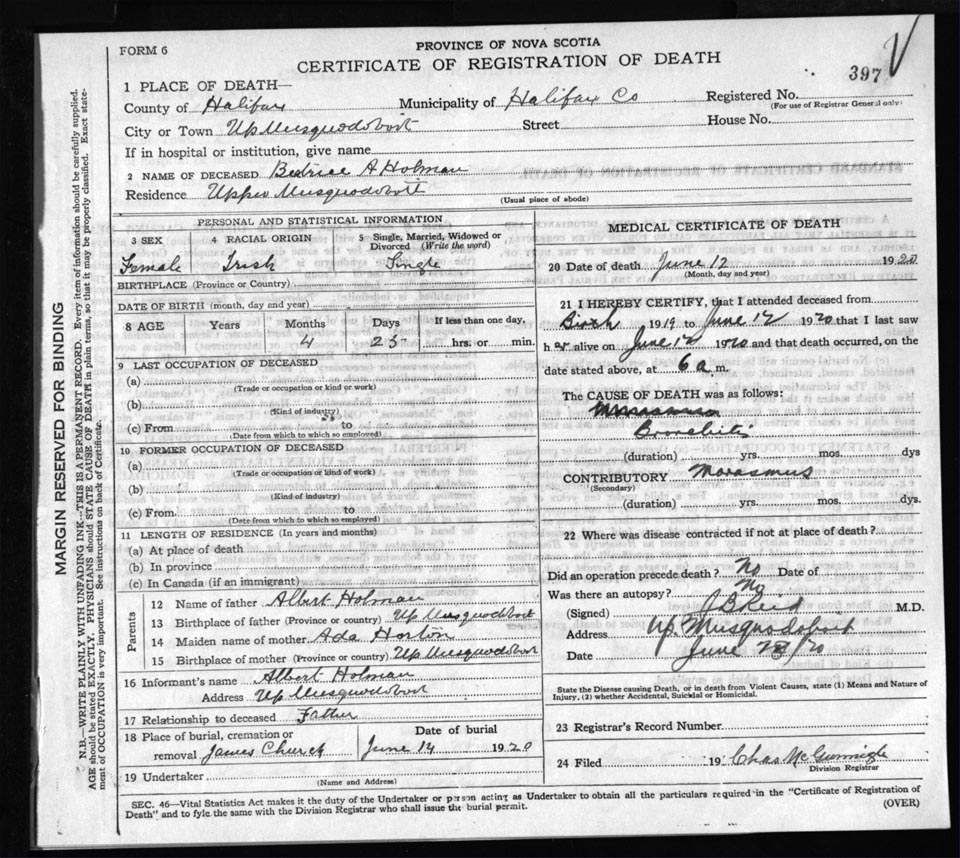 FORM 6
PROVINCE OF NOVA SCOTIA
CERTIFICATE OF REGISTRATION OF DEATH
397
1 PLACE OF DEATH—
County of Halifax Municipality of Halifax Co Registered No.
(For use of Registrar General only)
City or Town Up Musquodoboit Street House No.
If in hospital or institution, give name
2 NAME OF DECEASED Beatrice A Holman
Residence Upper Musquodoboit
(Usual place of abode)
PERSONAL AND STATISTICAL INFORMATION
3 SEX 4 RACIAL ORIGIN 5 Single, Married, Widowed or Divorced (Write the word)
Female Irish Single
BIRTHPLACE (Province or Country)
DATE OF BIRTH (month, day and year)
8 AGE Years Months Days If less than one day,
4 25 hrs. or min.
9 LAST OCCUPATION OF DECEASED
(a)
(Trade or occupation or kind or work)
(b)
(Kind of industry)
(c) From to
(Date from which to which so employed)
10 FORMER OCCUPATION OF DECEASED
(a)
(Trade or occupation or kind of work)
(b)
(Kind of industry)
(c) From to
(Date from which to which so employed)
11 LENGTH OF RESIDENCE (In years and months)
(a) At place of death
(b) In province
(c) In Canada (if an immigrant)
Parents
12 Name of father Albert Holman
13 Birthplace of father (Province or country) Up Musquodoboit
14 Maiden name of mother Ada Horton
15 Birthplace of mother (Province or country) Up Musquodoboit
16 Informant's name Albert Holman
Address Up Musquodoboit
17 Relationship to deceased Father
18 Place of burial, cremation or removal James Church Date of burial June 14 1920
19 Undertaker
(Name and Address)
MEDICAL CERTIFICATE OF DEATH
20 Date of death June 12 1920
(Month, day and year)
21 I HEREBY CERTIFY, that I attended deceased from
Birth 1919 to June 12 1920 that I last saw
her alive on June 12 1920 and that death occurred, on the
date stated above, at 6 a m.
The CAUSE OF DEATH was as follows:
Bronchitis
(duration) yrs. mos. dys
CONTRIBUTORY Marasmus
(Secondary)
(duration) yrs. mos. dys.
22 Where was disease contracted if not at place of death?
Did an operation precede death? No Date of
Was there an autopsy? No
(Signed) J B Reid M.D.
Address Up. Musquodoboit
Date June /20
State the Disease causing Death, or in death from Violent Causes, state (1) Means and Nature of
Injury, (2) whether Accidental, Suicidal or Homicidal.
23 Registrar's Record Number
24 Filed 19 Chas McGunnigle
Division Registrar
SEC. 46—Vital Statistics Act makes it the duty of the Undertaker or person acting as Undertaker to obtain all the particulars required in the "Certificate of Registration of
Death" and to fyle the same with the Division Registrar who shall issue the burial permit.
(OVER)
MARGIN RESERVED FOR BINDING
N.B.—WRITE PLAINLY WITH UNFADING INK—THIS IS A PERMANENT RECORD. Every item of information should be carefully supplied.
AGE should be stated EXACTLY. PHYSICIANS should STATE CAUSE OF DEATH in plain terms, so that it may be properly classified. Exact state-
ment of OCCUPATION is very important. See instructions on back of Certificate.